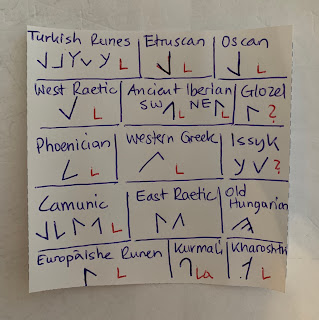 Turkish Runes Etruscan Oscan
L L L
West Raetic Ancient Iberian Glozel
L SW L NE L ?
Phoenician Western Greek Issyk
L L ?
Camunic East Raetic Old Hungarian
L
Europäishe Runen Kurmali Kharosthi
L La L